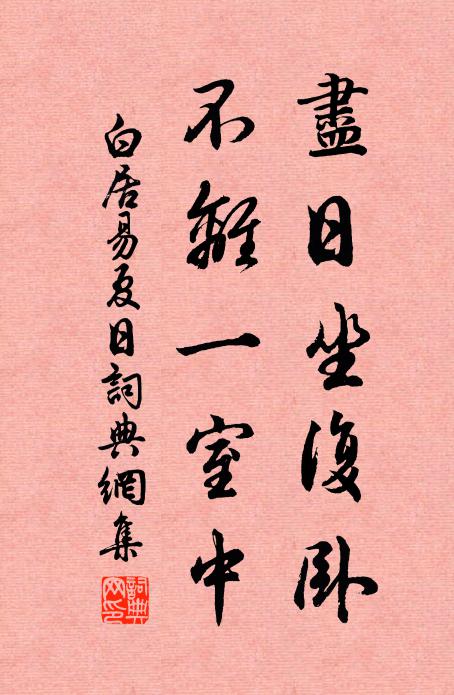 盡日坐復卧
不離一室中
白居易夏日詞典網集
詞典網印